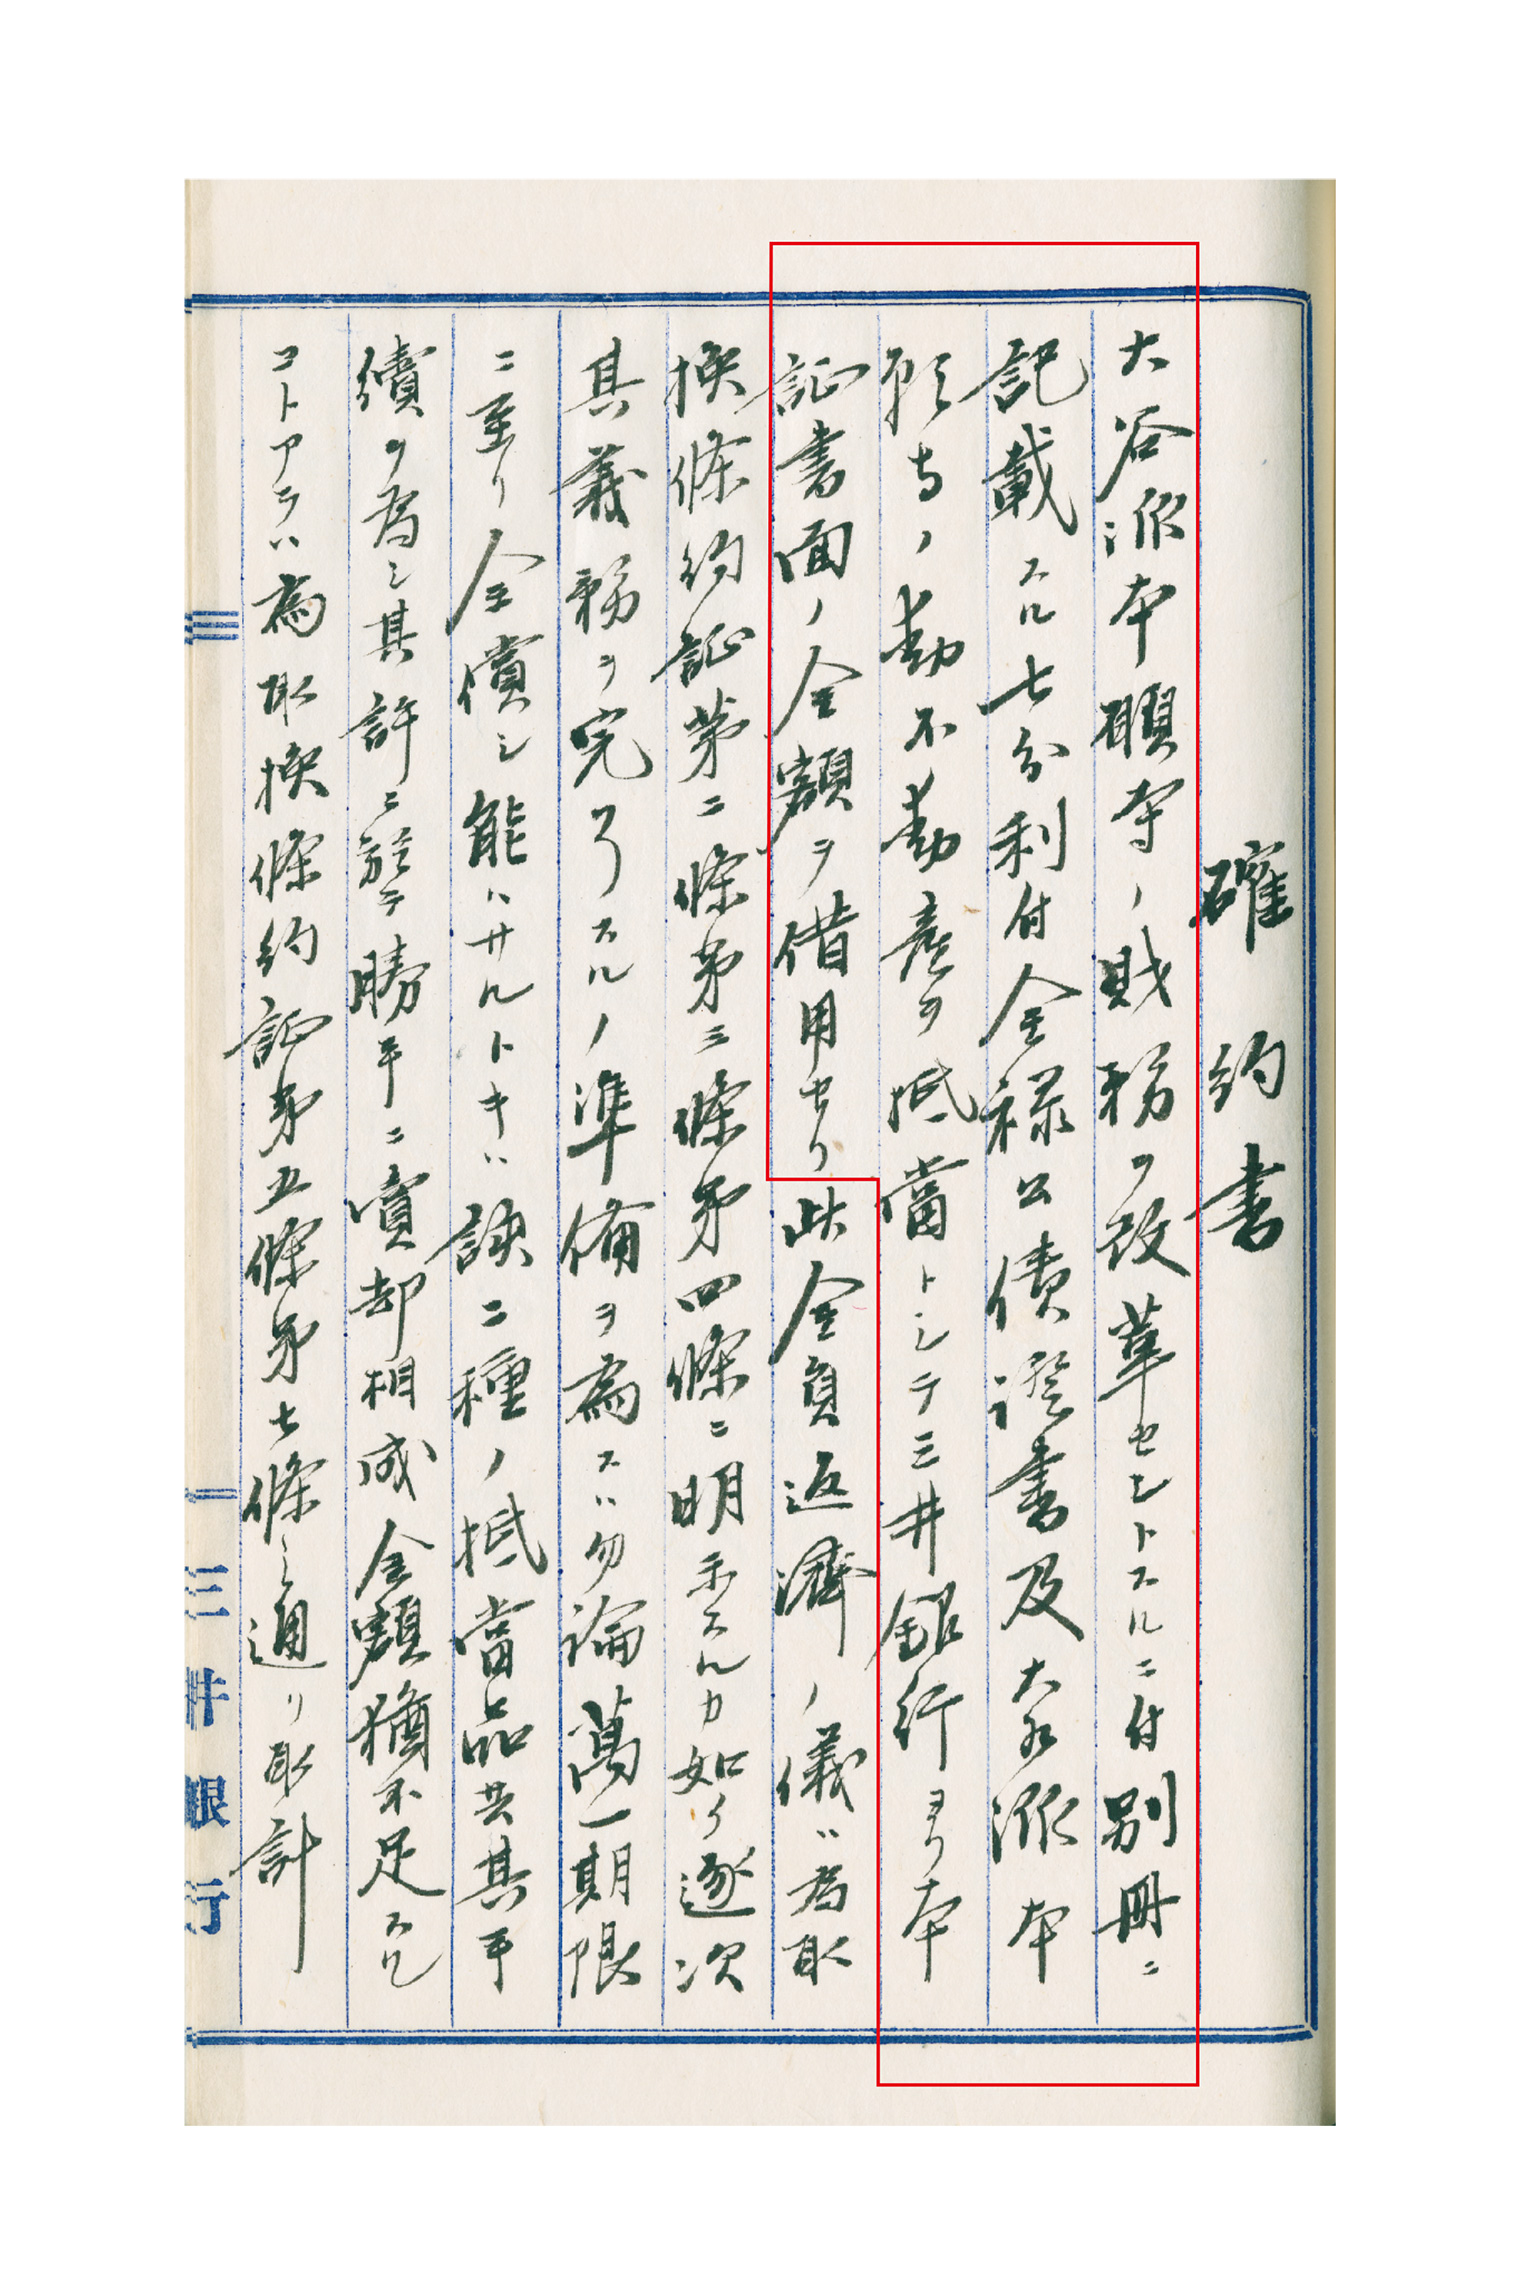 確約書
大谷派本願寺ノ財務ヲ改革セントスルニ付別冊ニ
記載スル七分利付金禄公債證書及大谷派本
願寺ノ動不動産ヲ抵當トシテ三井銀行ヨリ本
証書面ノ金額ヲ借用セリ此金員返濟ノ儀ハ為取
換條約証第二條第三條第四條ニ明示スルカ如ク逐次
其義務ヲ完了スルノ準備ヲ為スハ勿論萬一期限
ニ至リ全償シ能ハサルトキハ該二種ノ抵當品共其手
續ヲ為シ其許ニ於テ勝手ニ賣却相成全額猶不足スル
コトアラハ為取換條約証第五條第七條之通リ取計
三井銀行